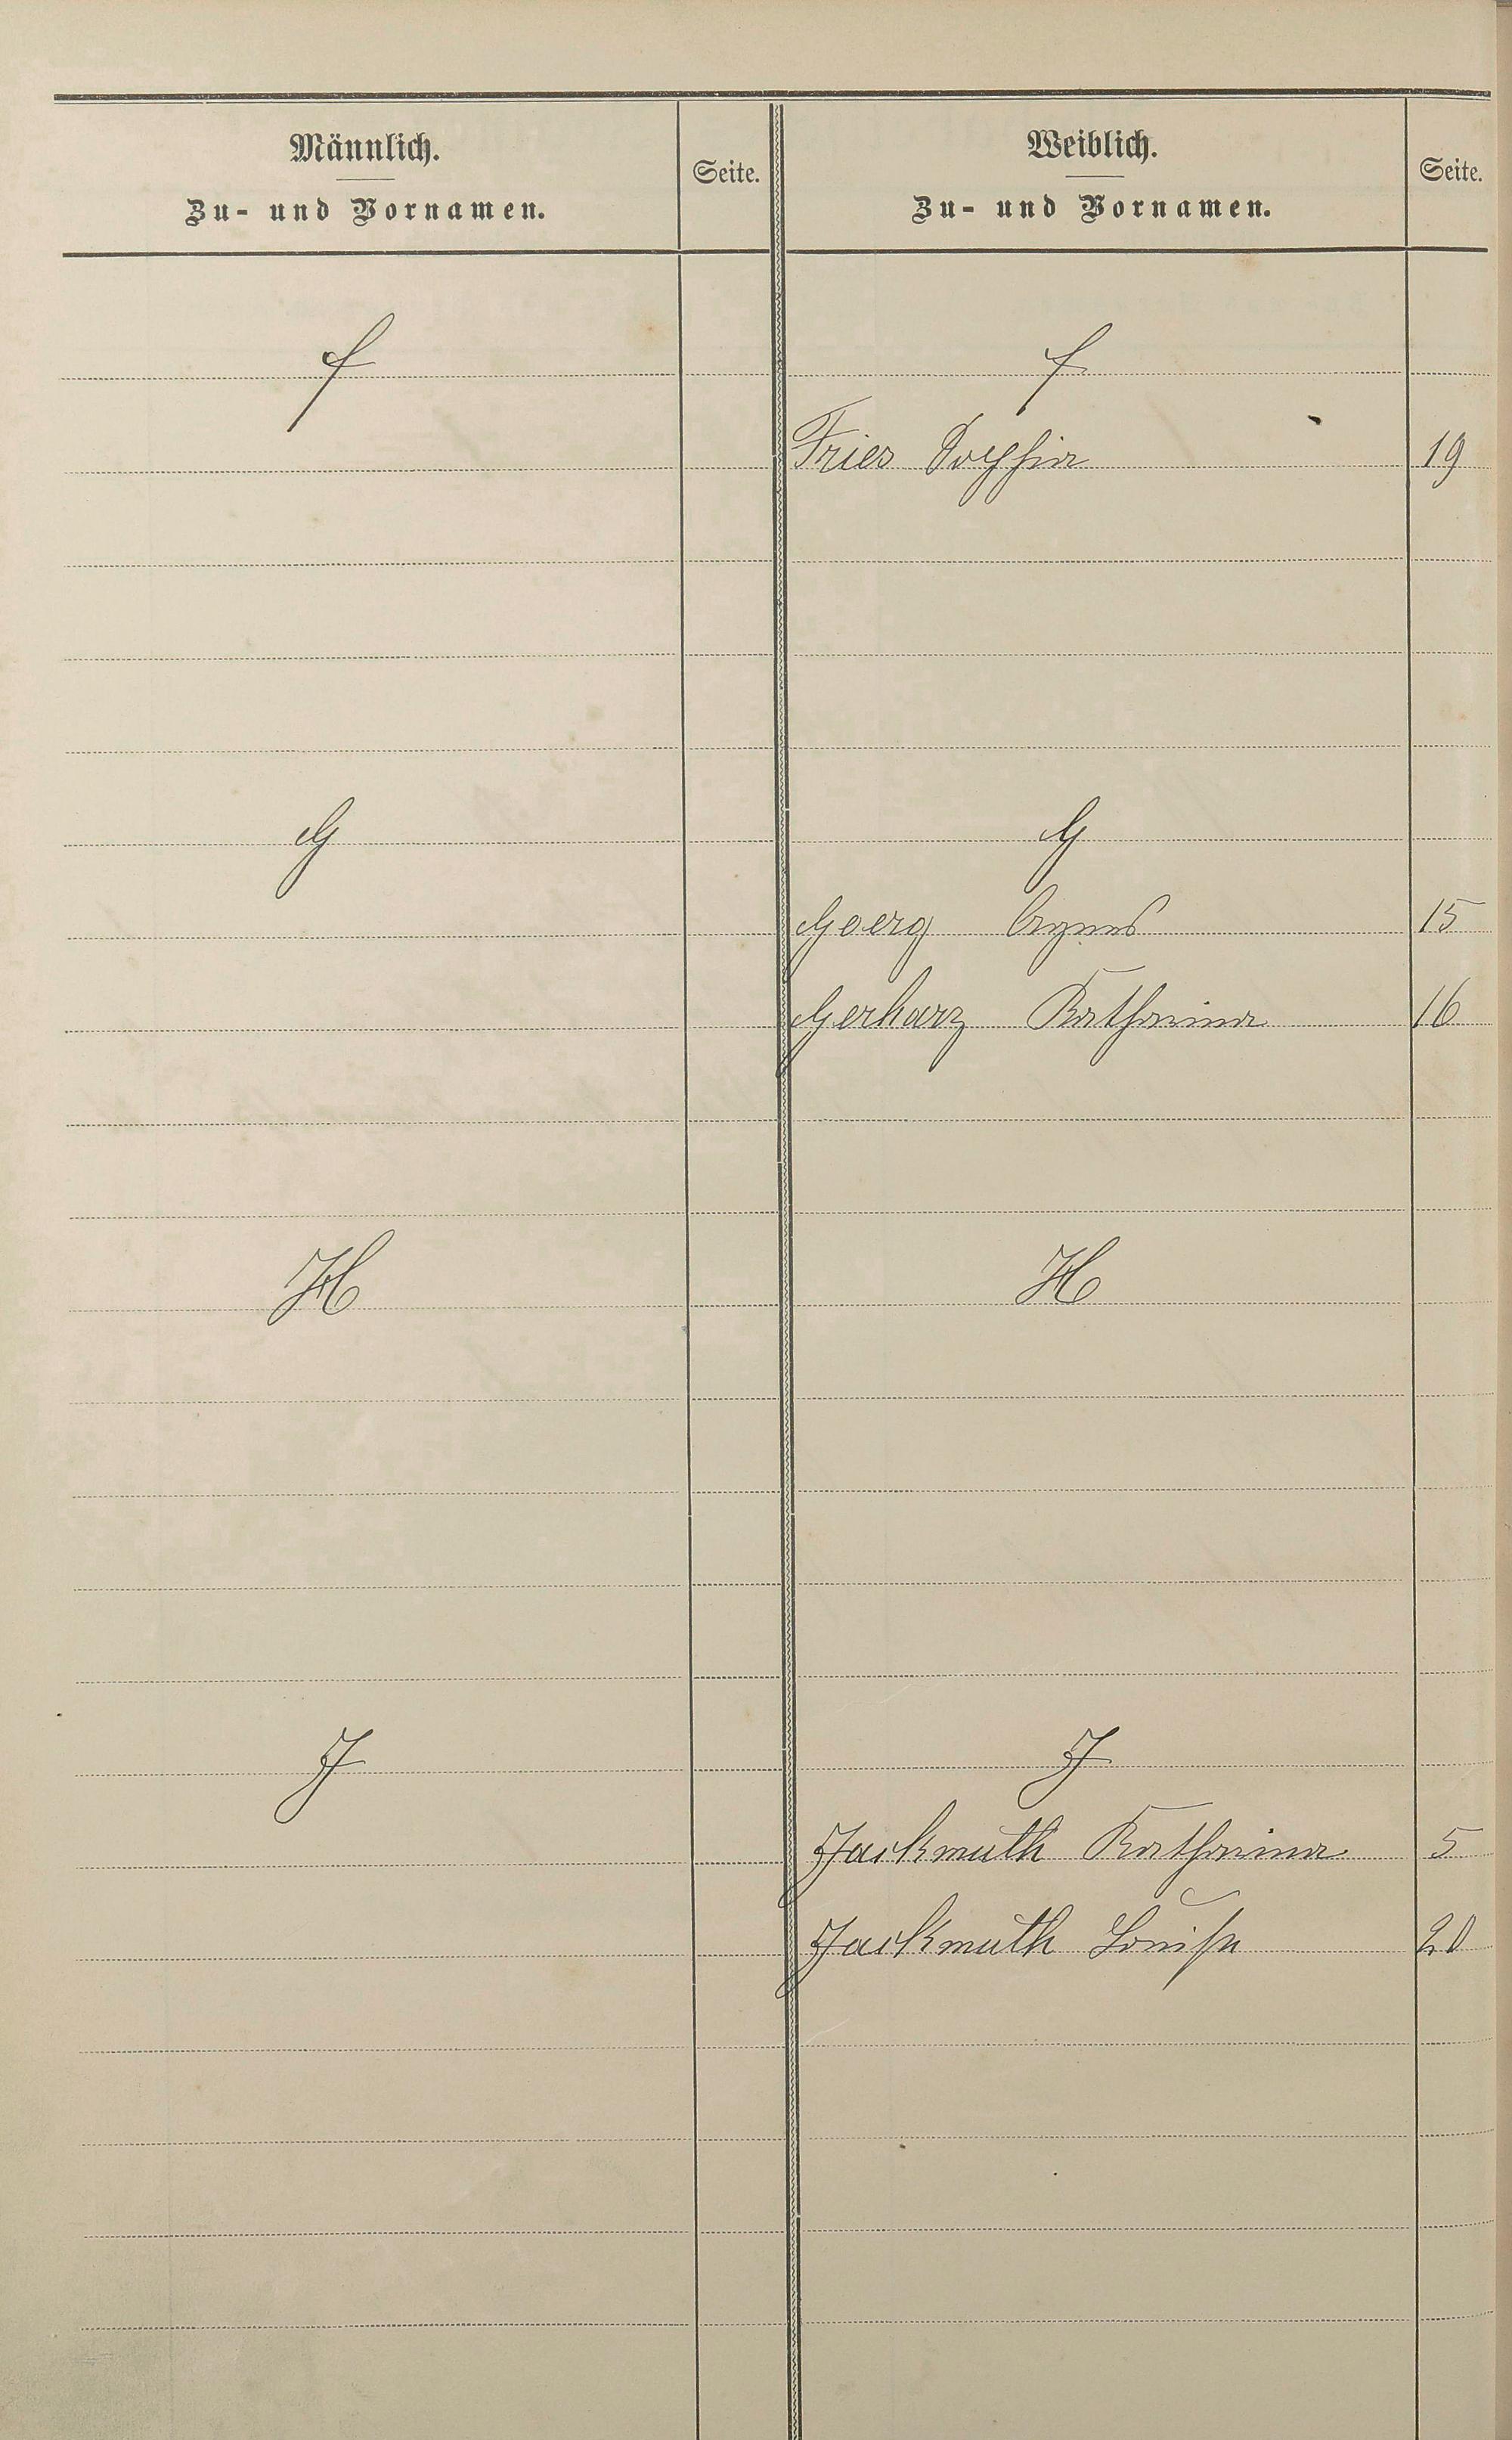 Männlich.
Zu- und Vornamen.
Seite.
Weiblich.
Zu- und Vornamen.
Seite.
F F
Fries Sophia 19
G G
Goerg Agnes 15
Gerharz Katharina 16
H H
J J
Jackmuth Katharina 5
Jackmuth Louise 20